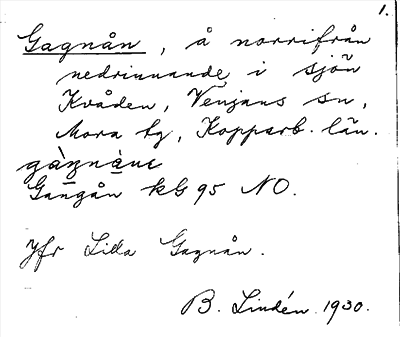 1.
Gagnån, å norrifrån
nedrinnande i sjön
Kvåden, Venjans sn,
Mora tg, Kopparb. län.
gàgnàne
Gangån kG 95 NO.
Jfr Lilla Gagnån.
B. Lindén 1930.